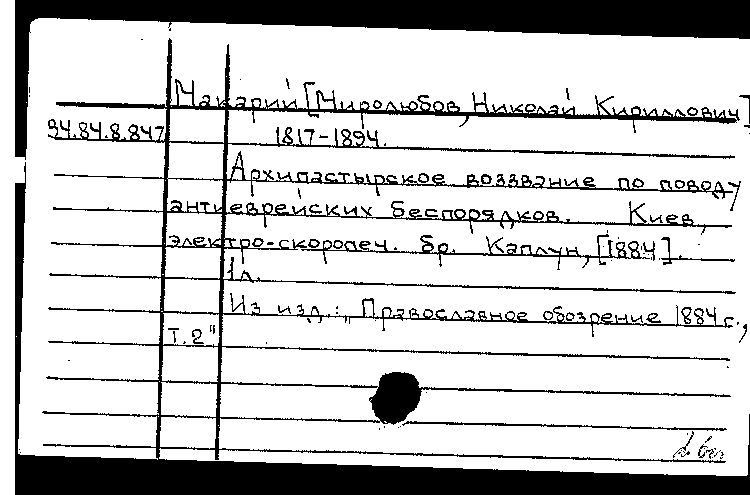 Макарий [Миролюбов, Николай Кириллович]
94.84.8.847 1817-1894.
Архипастырское воззвание по поводу
антиеврейских беспорядков. Киев,
электро-скоропеч. бр. Каплун, [1884].
1л.
Из изд.: „Православное обозрение 1884 г.,
т. 2"